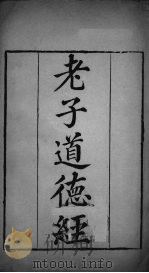 老子道德經
mtoou.info